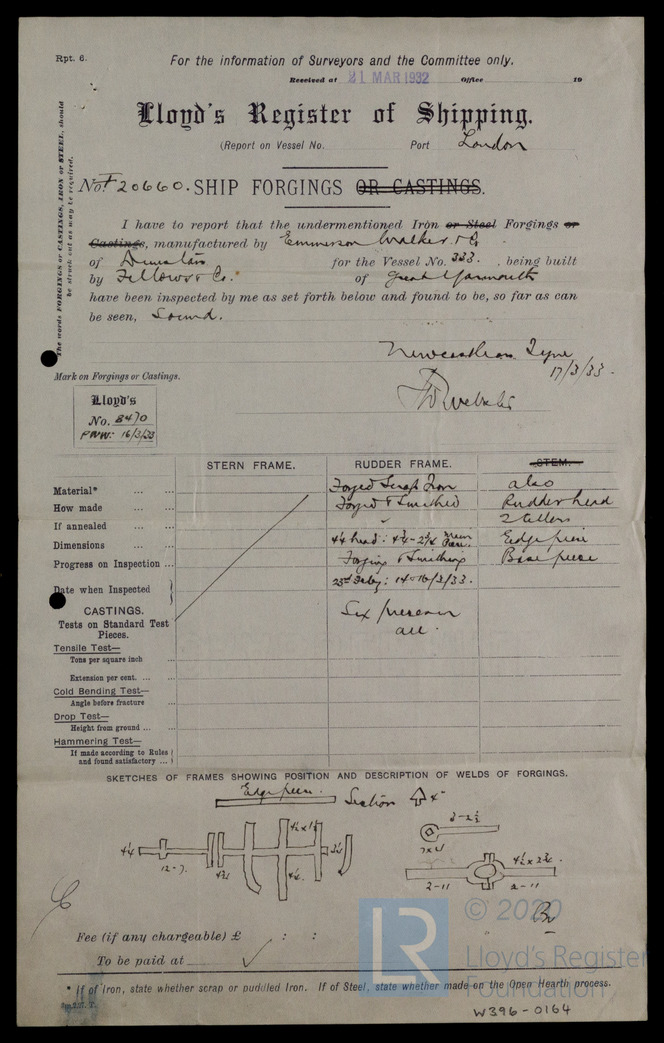 Rpt. 6.
For the information of Surveyors and the Committee only.
Received at 21 MAR 1932 Office 19
Lloyd's Register of Shipping.
(Report on Vessel No. Port London
No. F 20660. SHIP FORGINGS OR CASTINGS.
The words FORGINGS or CASTINGS, IRON or STEEL, should
be struck out as may be required.
I have to report that the undermentioned Iron or Steel Forgings or
Castings, manufactured by Emmerson Walker & Co
of Dunston for the Vessel No. 333. , being built
by Fellows & Co. of Great Yarmouth
have been inspected by me as set forth below and found to be, so far as can
be seen, Sound.
Newcastle on Tyne
17/3/33.
Mark on Forgings or Castings.
Lloyd's
No. 8470
16/3/33
STERN FRAME. RUDDER FRAME. STEM.
Material* ... ... Forged Scrap Iron also
How made ... ... Forged & Smithed Rudder head
If annealed ... ... 2 tillers
Dimensions ... ... Edge piece
Progress on Inspection ... Forging & Smithing Base piece
Date when Inspected 14 & 16/3/33.
CASTINGS.
Tests on Standard Test
Pieces.
Six pieces in
all.
Tensile Test—
Tons per square inch ...
Extension per cent. ... ...
Cold Bending Test—
Angle before fracture ...
Drop Test—
Height from ground ... ...
Hammering Test—
If made according to Rules
and found satisfactory ...
SKETCHES OF FRAMES SHOWING POSITION AND DESCRIPTION OF WELDS OF FORGINGS.
Edge piece. Section 4"
2-2½
4½ x 1½
4¼ 3½
12-7. 4¾ 7x4
4½ x 2¾.
4¼. 2-11 2-11
© 2020
Fee (if any chargeable) £ : :
To be paid at
LR
Lloyd's Register
Foundation
* If of Iron, state whether scrap or puddled Iron. If of Steel, state whether made on the Open Hearth process.
W396-0164